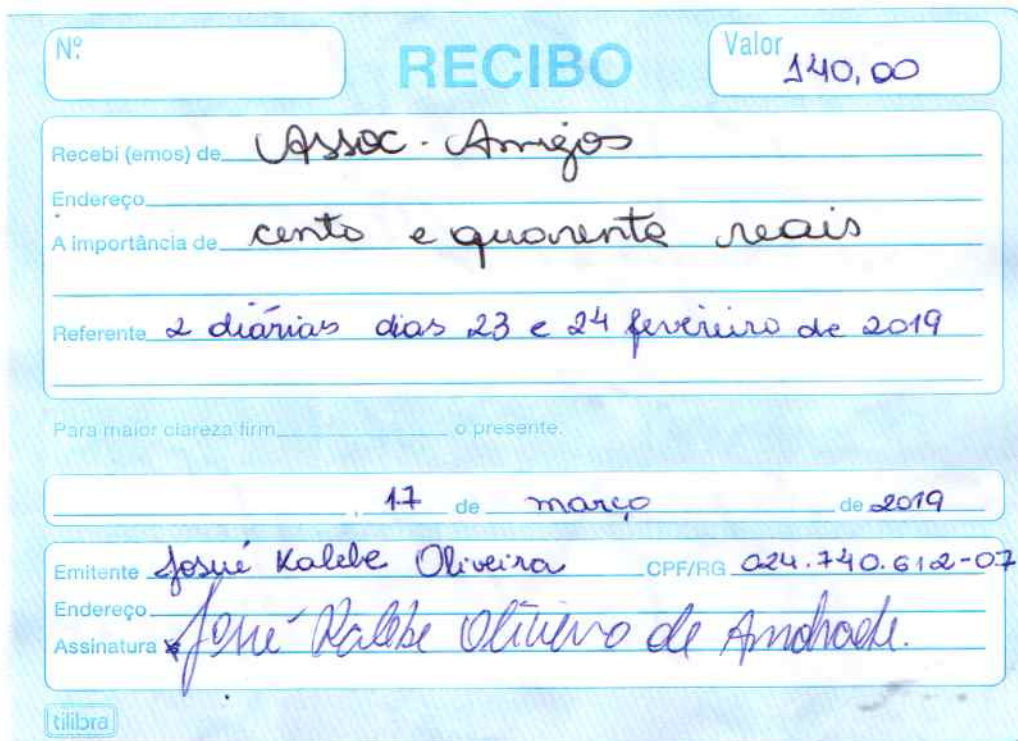 Nº
RECIBO
Valor
140,00
Recebi (emos) de Assoc. Amigos
Endereço
A importância de cento e quarenta reais
Referente 2 diárias dias 23 e 24 fevereiro de 2019
Para maior clareza firm o presente.
, 17 de março de 2019
Emitente Josué Kalebe Oliveira CPF/RG 024.740.612-07
Endereço
Assinatura x Josué Kalebe Oliveira de Andrade.
tilibra